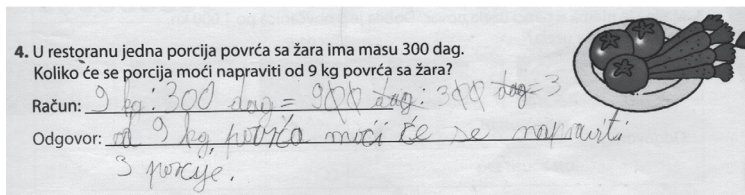 4. U restoranu jedna porcija povrća sa žara ima masu 300 dag.
Koliko će se porcija moći napraviti od 9 kg povrća sa žara?
Račun: 9 kg : 300 dag = 900 dag : 300 dag = 3
Odgovor: od 9 kg povrća moći će se napraviti
3 porcije.